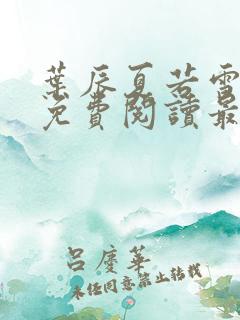 葉辰夏若雪
免費閱讀最
呂慶華
未經同意禁止轉載